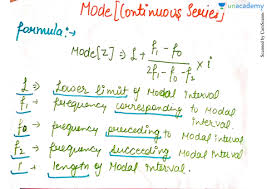 Mode [Continuous Series]
unacademy
formula:→
Mode[Z] = L + f₁ - f₀ / 2f₁ - f₀ - f₂ × i
L => Lower limit of Modal interval
f₁ => frequency corresponding to Modal interval.
f₀ => frequency preceeding to Modal interval
f₂ => frequency succeeding Modal interval
i => length of Modal interval.
Scanned by CamScanner